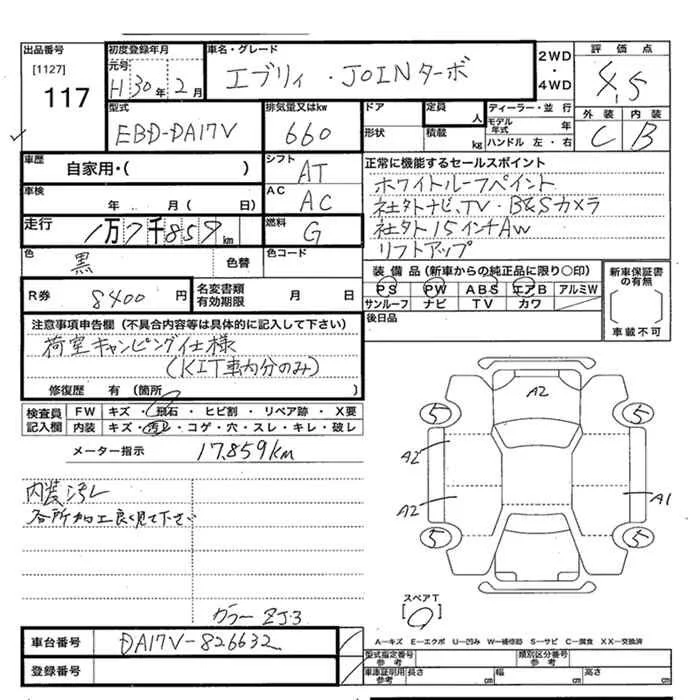 出品番号
[1127]
117
初度登録年月
元号
H 30年 2月
車名・グレード
エブリィ・JOINターボ
2WD
・
4WD
評価点
4.5
外装 内装
C B
型式
EBD-DA17V
排気量又はkw
660
ドア
形状
定員
人
積載
kg
ディーラー・並行
モデル年式 年
ハンドル 左・右
車歴
自家用・( )
シフト
AT
車検
年 月( 日)
AC
AC
走行
1万7千859km
燃料
G
正常に機能するセールスポイント
ホワイトルーフペイント
社外ナビ、TV・B&Sカメラ
社外15インチAW
リフトアップ
色
黒
色替
色コード
R券 8400円
名変書類有効期限 月 日
装備品(新車からの純正品に限り○印)
PS PW ABS エアB アルミW
サンルーフ ナビ TV カワ
後日品
新車保証書の有無
[ ]
車載不可
注意事項申告欄(不具合内容等は具体的に記入して下さい)
荷室キャンピング仕様
(KIT車内分のみ)
修復歴 有(箇所 )
検査員記入欄
FW キズ・飛石・ヒビ割・リペア跡・X要
内装 キズ・汚レ・コゲ・穴・スレ・キレ・破レ
メーター指示 17,859km
内装汚レ
各所加工良く見て下さい
カラーZJ3
A2
5 5
A2
A2 A1
5 5
スペアT
[ ]
A―キズ E―エクボ U―凹み W―補修跡 S―サビ C―腐食 XX―交換済
車台番号 DA17V-826632
登録番号
型式指定番号 参考
類別区分番号 参考
車庫証明用 参考 長さ cm 幅 cm 高さ cm